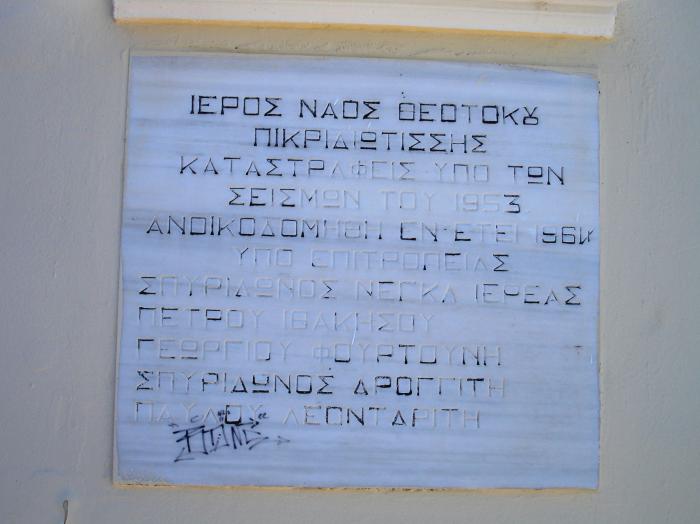 ΙΕΡΟΣ ΝΑΟΣ ΘΕΟΤΟΚȣ
ΠΙΚΡΙΔΙΩΤΙΣΣΗΣ
ΚΑΤΑΣΤΡΑΦΕΙΣ ΥΠΟ ΤΩΝ
ΣΕΙΣΜΩΝ ΤΟΥ 1953
ΑΝΟΙΚΟΔΟΜΗΘΗ ΕΝ ΕΤΕΙ 1964
ΥΠΟ ΕΠΙΤΡΟΠΕΙΑΣ
ΣΠΥΡΙΔΩΝΟΣ ΝΕΓΚΑ ΙΕΡΕΑΣ
ΠΕΤΡΟΥ ΙΘΑΚΗΣΟΥ
ΓΕΩΡΓΙΟΥ ΦΟΥΡΤΟΥΝΗ
ΣΠΥΡΙΔΩΝΟΣ ΔΡΟΓΓΙΤΗ
ΠΑΥΛΟΥ ΛΕΟΝΤΑΡΙΤΗ